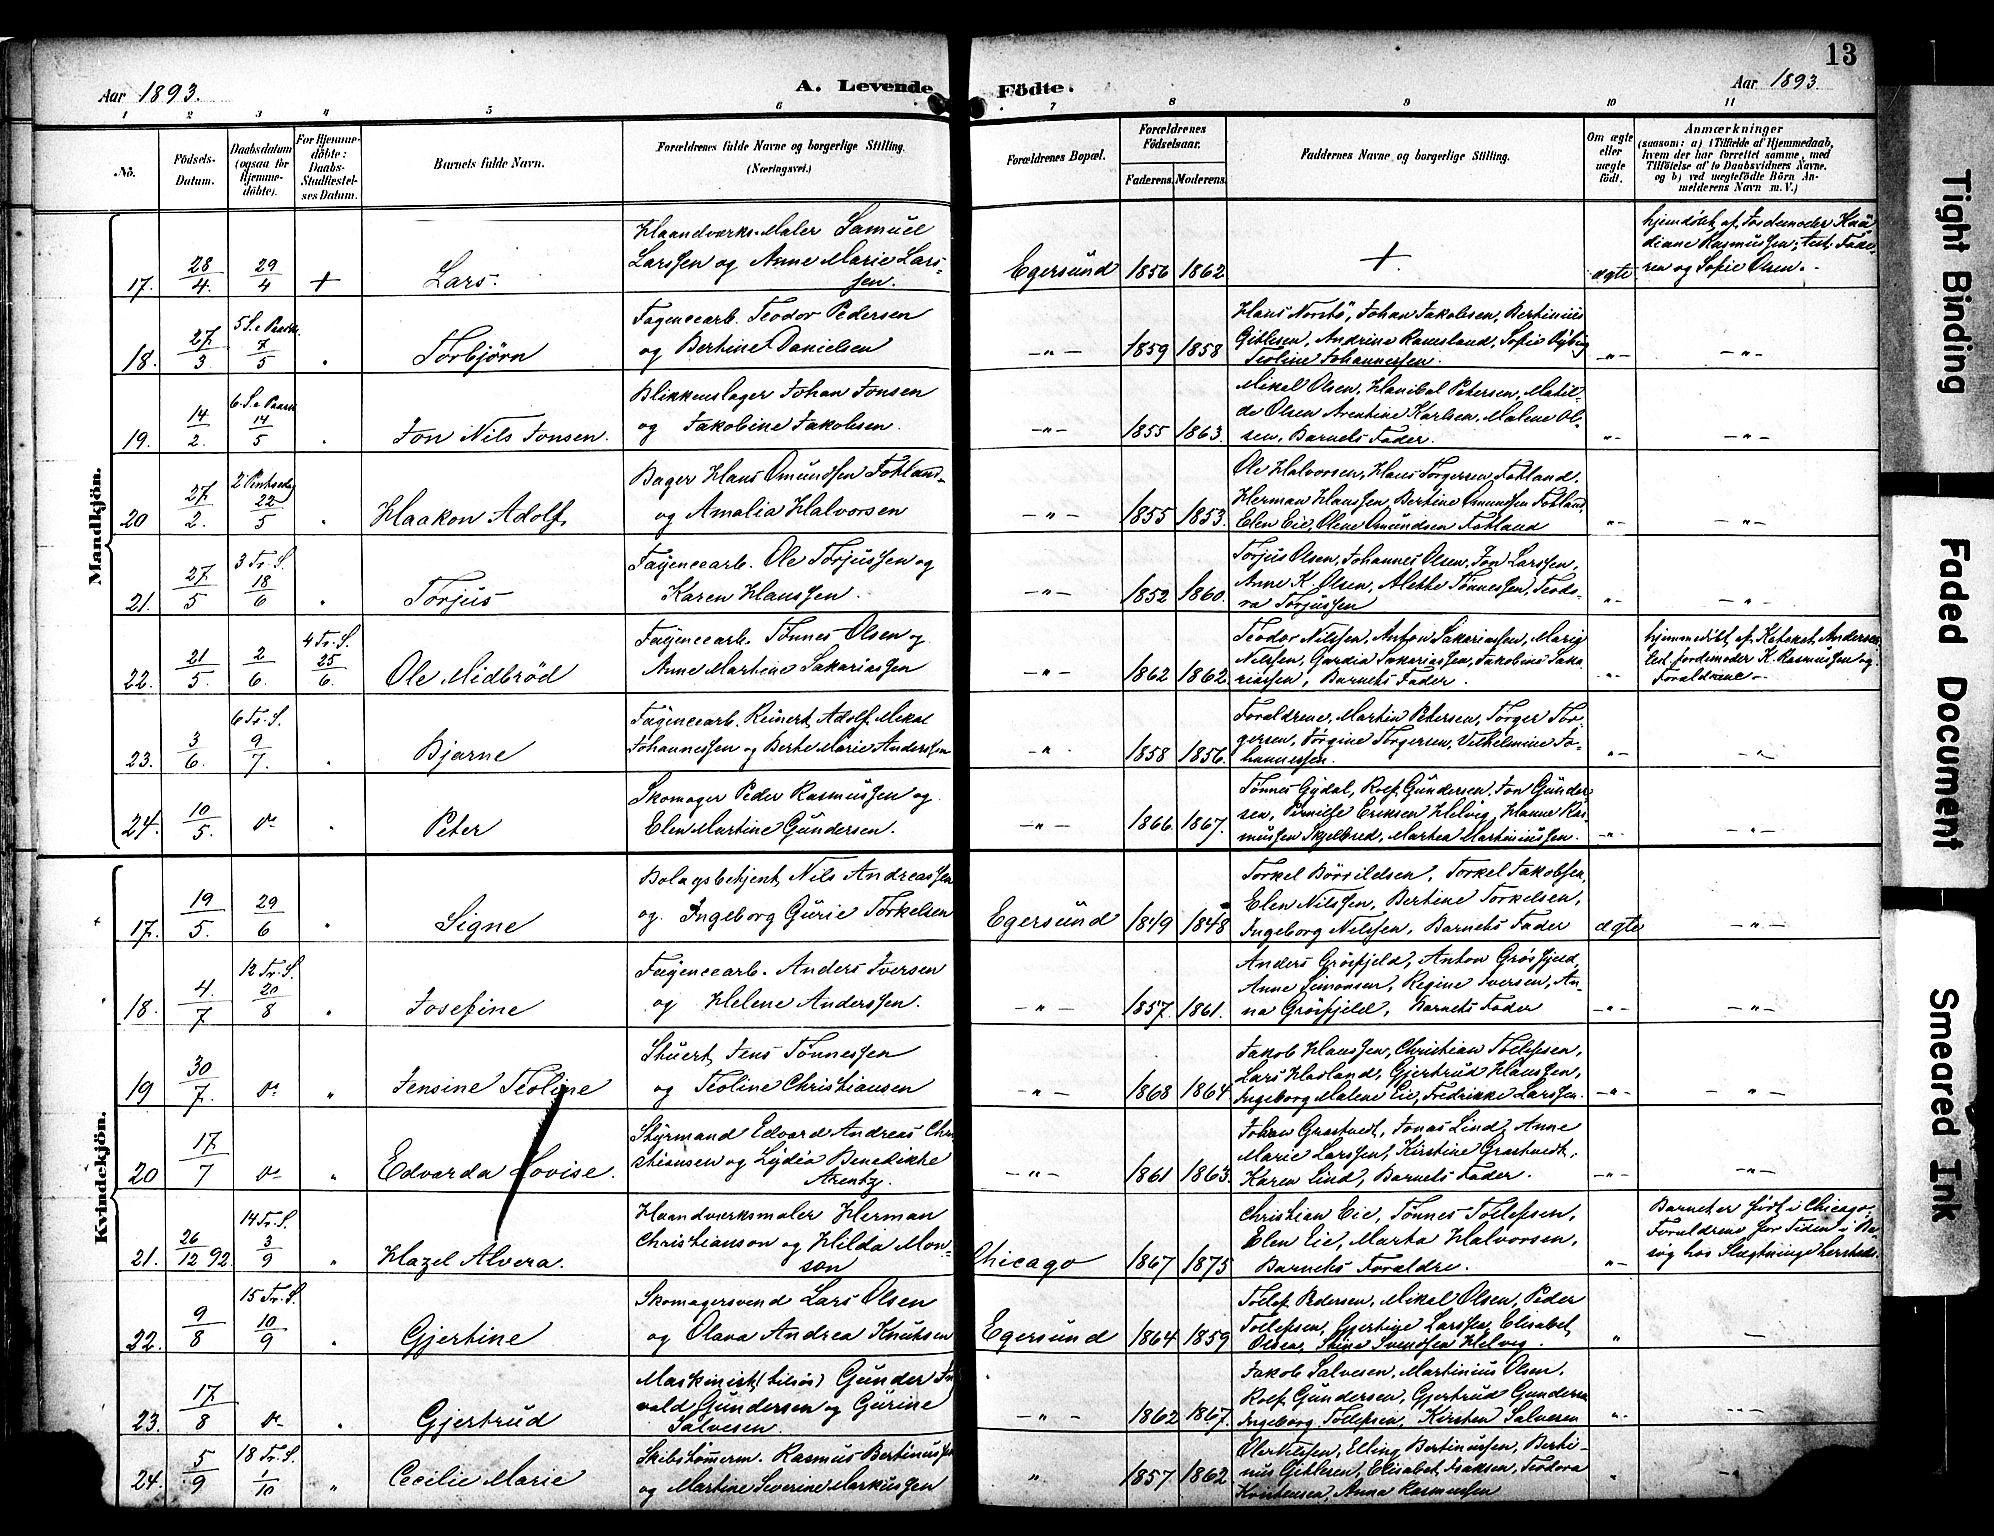 13
Aar 1893.
A. Levende Födte.
Aar 1893.
1 2 3 4 5 6 7 8 9 10 11
No.
Födsels-
Datum.
Daabsdatum
(ogsaa for
Hjemme-
döbte).
For Hjemme-
döbte:
Daabs-
Stadfæstel-
ses Datum.
Barnets fulde Navn.
Forældrenes fulde Navne og borgerlige Stilling.
(Næringsvei.)
Forældrenes Bopæl.
Forældrenes
Födselsaar.
Faderens. Moderens.
Faddernes Navne og borgerlige Stilling.
Om ægte
eller
uægte
födt.
Anmærkninger
(saasom: a) i Tilfælde af Hjemmedaab,
hvem der har forrettet samme, med
Tilföielse af to Daabsvidners Navne,
og b) ved uægtefödte Börn An-
melderens Navn m. V.)
Mandkjön.
17. 28/4. 29/4 + Lars.
Haandværks-Maler Samuel
Larssen og Anne Marie Lars-
sen.
Egersund 1856 1862 + ægte
hjemdöbt af Jordemoder
Rasmussen; test. Fade-
ren og Sofie Olsen.
18. 27/3 5 S. e Paaske 7/5 " Torbjörn
Fayencearb. Teodor Pedersen
og Bertine Danielsen
— " — 1859 1858
Hans Norstö, Johan Jakobsen, Bertinius
Gitlesen, Andrine Ramsland, Sofie
Teoline Johannessen.
— " — — " —
19. 14/2. 6 S. e Paaske 14/5 " Jon Nils Jonsen.
Blikkenslager Johan Jonsen
og Jakobine Jakobsen.
— " — 1855 1863.
Mikal Olsen, Hanibal Petersen, Matil-
de Olsen Arentine Karlsen, Malene Ol-
sen, Barnets Fader.
" — — " —
20 27/2. 2 Pintsedag 22/5 " Haakon Adolf
Bager Hans Omundsen Fotland
og Amalia Halvorsen
— " — 1855 1853.
Ole Halvorsen, Hans Torgersen Fotland,
Herman Hanssen, Bertine Omundsen Fotland
Elen Eie, Olene Omundsen Fotland
" — — " —
21. 27/5 3 Tr. S. 18/6 " Torjus
Fayencearb. Ole Torjussen og
Karen Hanssen.
— " — 1852 1860.
Torjus Olsen, Johannes Olsen, Jon Larssen,
Anne K. Olsen, Alette Tönnessen, Teodo-
ra Torjussen
" — — " —
22. 21/5. 2/6. 4 Tr. S. 25/6. Ole Midbröd
Fayencearb. Tönnes Olsen og
Anne Martine Sakariassen
— " — 1862 1862.
Teodor Nilssen, Anton Sakariassen, Marie
Nilssen, Gurdia Sakariassen, Jakobine Saka-
riassen, Barnets Fader.
" —
hjemmedöbt af Kateket Andersen
test. Jordemoder K. Rasmussen og
Forældrene.
23. 3/6. 6 Tr. S. 9/7. " Bjarne
Fayencearb. Reinert Adolf Mikal
Johannessen og Berte Marie Anderssen
— " 1858 1856.
Forældrene, Martin Petersen, Torger Tor-
gersen, Jörgine Torgersen, Vilhelmine Jo-
hannessen.
" — — " —
24. 10/5. do " Peter
Skomager Peder Rasmussen og
Elen Martine Gundersen.
— " — 1866. 1867.
Tönnes Gydal, Rolf Gundersen, Jon Gunder-
sen, Pernille Eriksen Helvig, Hanne Ras-
mussen Skjelbred, Martea Martiniussen.
" — — " —
Kvindekjön.
17. 19/5. 29/6 " Signe
Bolagsbetjent Nils Andreassen
og Ingeborg Gurie Torkelsen
Egersund 1849 1848
Torkel Börrildsen, Torkel Jakobsen,
Elen Nilssen, Bertine Torkelsen,
Ingeborg Nilssen, Barnets Fader
ægte — " —
18. 4/7 12 Tr. S. 20/8 " Josefine
Fayencearb. Anders Iversen
og Helene Anderssen.
— " — 1857. 1861.
Anders Grösfjeld, Anton Grösfjeld,
Anne Simonsen, Regine Iversen, An-
na Grösfjeld, Barnets Fader
— " — — " —
19 30/7. do " Jensine Teoline
Stuert Jens Tönnessen
og Teoline Christiansen
— " — 1868 1864
Jakob Hanssen, Christian Tollefsen,
Lars Hadland, Gjertrud Hanssen,
Ingeborg Malene Eie, Fredrikke Larssen.
— " — — " —
20 17/7 do " Edvarda Lovise.
Styrmand Edvard Andreas Chri-
stiansen og Lydia Benedikte
Arentz.
— " — 1861 1863.
Johan Grastvedt, Jonas Lind, Anne
Marie Larssen, Kirstine Grastvedt,
Karen Lind, Barnets Fader.
— " — — " —
21. 26/12 92 14 Tr. S. 3/9 " Hazel Alvera.
Haandværksmaler Herman
Christianson og Hilda Mon-
son
Chicago 1867 1875
Christian Eie, Tönnes Tollefsen,
Elen Eie, Marta Halvorsen,
Barnets Forældre.
" —
Barnet er född i Chicago.
Forældrene for Tiden i Be-
sög hos Slægtninge
22. 9/8 15 Tr. S. 10/9 " Gjertine
Skomagersvend Lars Olsen
og Olava Andrea Knutsen
Egersund 1864 1859
Tollef Pedersen, Mikal Olsen, Peder
Tollefsen, Gjertine Larssen, Elisabet
Olsen, Stine Svendsen Helvig.
" —
23. 17/8 do " Gjertrud
Maskinist (tilsös) Gunder
vald Gundersen og Gurine
Salvesen.
— " — 1862 1867.
Jakob Salvesen, Martinius Olsen,
Rolf Gundersen, Gjertrud Gundersen
Ingeborg Tollefsen, Kirsten Salvesen
" — — " —
24. 5/9 18 Tr. S. 1/10 " Cecilie Marie
Skibstömerm. Rasmus Bertinussen
og Martine Severine Markussen
" 1857 1862.
Elling Bertinussen, Berti-
nus Gitlesen, Elisabet Isaksen, Teodora
Kristensen, Anna Rasmussen
" — " —
Tight Binding
Faded Document
Smeared Ink